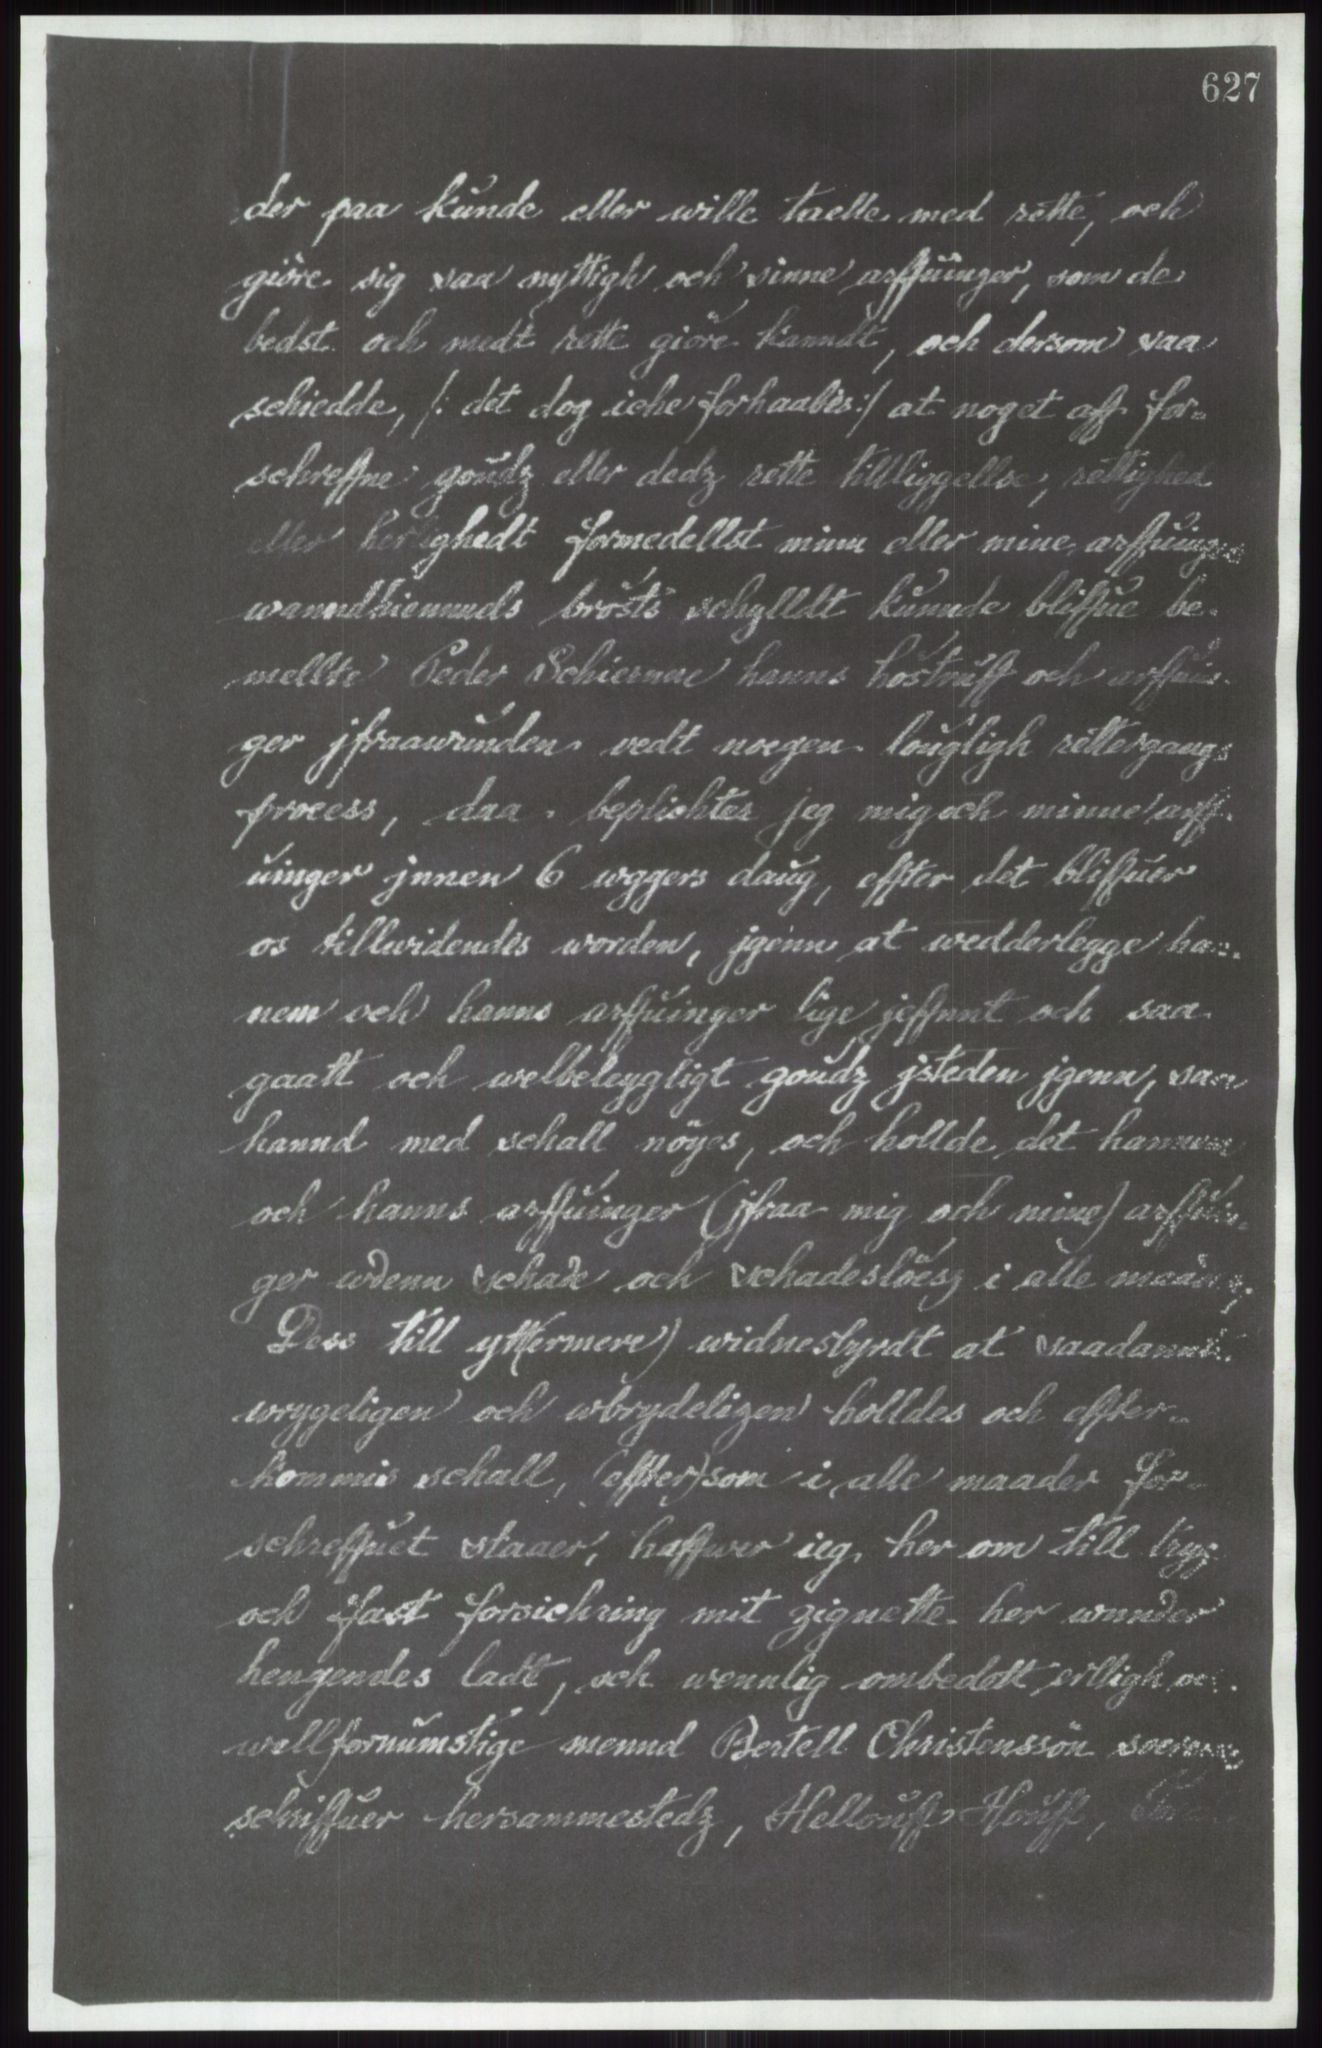 627
der paa kunde eller wille taelle med rette, och
giöre sig saa nyttigh och sinne arffuinger, som de
bedst och medt rette giöre kanndt, och dersom saa
schiedde, /: det dog iche forhaabes :/ at noget aff for-
schreffne goudz eller dedz rette tilliggellse, rettighed
eller herlighedt formedellst minn eller mine arffuinger
wanndhiemmels brösts schylldt kunnde bliffue be-
mellte Peder Schierme hanns hostruff och arffuin-
ger jfraawunden vedt noegen lougligh rettergangs
process, daa beplichter jeg mig och minne arff-
uinger jnnen 6 wggers daug, effter det bliffuer
os tillwidendes worden, jgenn at wedderlegge han-
nem och hanns arffuinger lige jeffnnt och saa
gaatt och welbeleygligt goudz jsteden jgenn, saa
hannd med schall nöyes, och hollde det hannem
och hanns arffuinger (jfraa mig och mine) arffuin-
ger wdenn schade och schadeslöesz i alle maader,
Dess till ytt(ermere) widnesbyrdt at saadannt
wrygeligen och wbrydeligen holldes och effter-
kommis schall, (effter)som i alle maader for-
schreffuet staaer, haffwer ieg her om till tryg
och fast forsichring mit zignette her wnnder
hengendes ladt, och wennlig ombedett erlligh oc
wellfornumstige mennd Bertell Christenssön
schriffuer hersammestedz, Hellouff Houff,